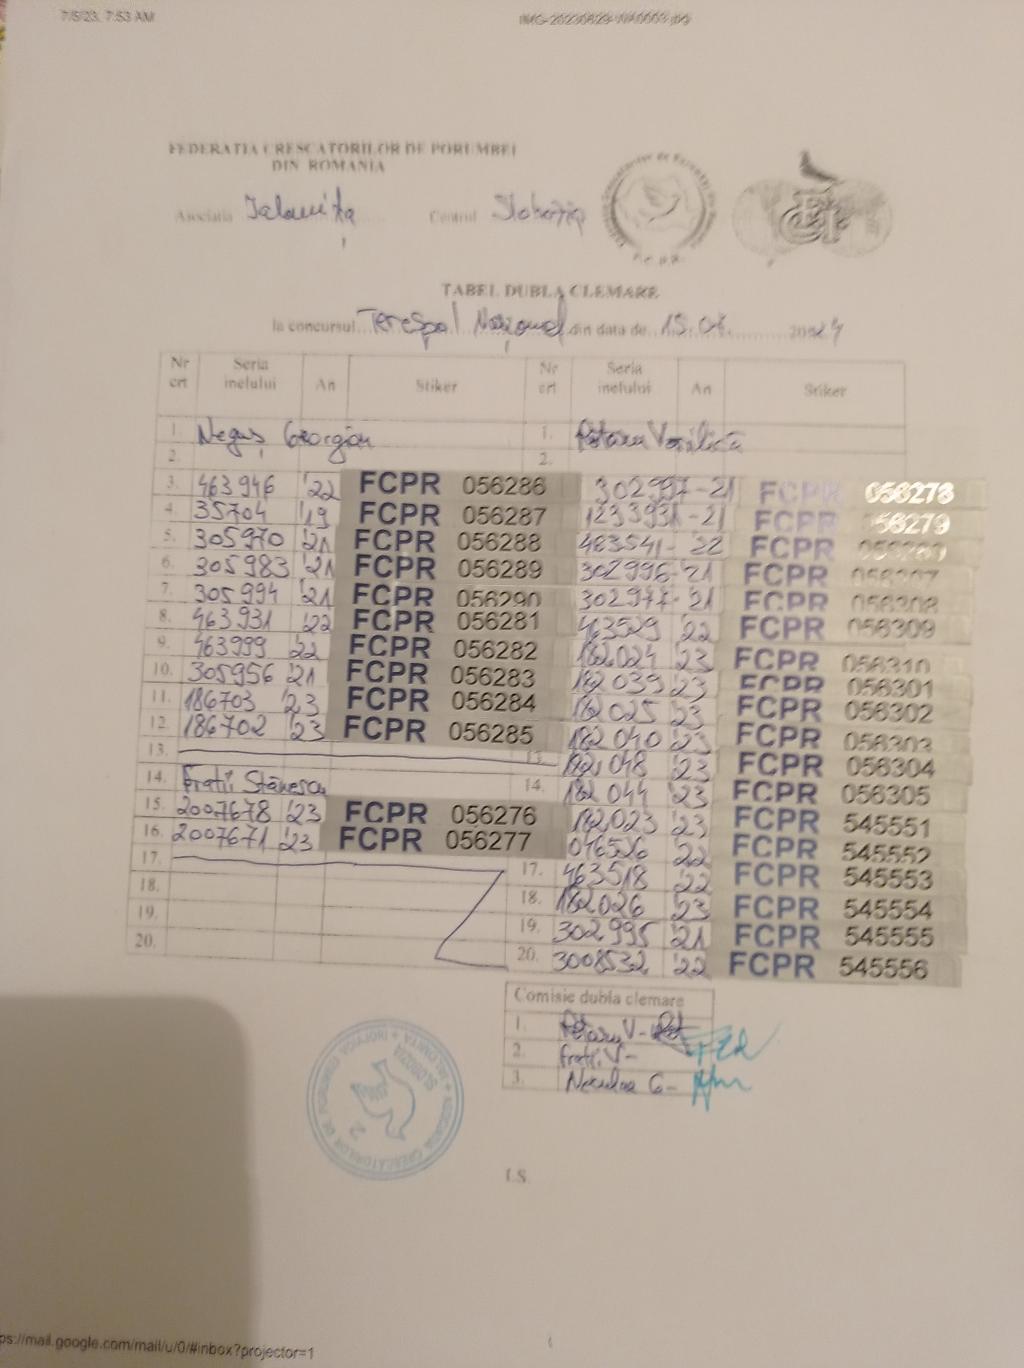 7/5/23, 7:53 AM
IMG-20230629-WA0003.jpg
FEDERATIA CRESCATORILOR DE PORUMBEI
DIN ROMANIA
Asociatia Ialomița Centrul Slobozia
TABEL DUBLA CLEMARE
la concursul Terespol Național din data de 15.06. 2024
Nr crt Seria inelului An Stiker Nr crt Seria inelului An Stiker
1. Neguș Georgian 1. Rotaru Vasilică
2. 2.
3. 463946 '22 FCPR 056286 302997-21 FCPR 056278
4. 35704 '19 FCPR 056287 1233931-21 FCPR 056279
5. 305970 '21 FCPR 056288 483541-22 FCPR
6. 305983 '21 FCPR 056289 302996-'21 FCPR 056307
7. 305994 '21 FCPR 056290 302977-'21 FCPR 056308
8. 463931 '22 FCPR 056281 463529 '22 FCPR 056309
9. 463999 '22 FCPR 056282 182024 '23 FCPR 056310
10. 305956 '21 FCPR 056283 182039 '23 FCPR 056301
11. 186703 '23 FCPR 056284 182025 '23 FCPR 056302
12. 186702 '23 FCPR 056285 182040 '23 FCPR 056303
13. 13. 182048 '23 FCPR 056304
14. Frații Stănescu 14. 182044 '23 FCPR 056305
15. 2007678 '23 FCPR 056276 182023 '23 FCPR 545551
16. 2007671 '23 FCPR 056277 046526 '22 FCPR 545552
17. 17. 463518 '22 FCPR 545553
18. 18. 182026 '23 FCPR 545554
19. 19. 302995 '21 FCPR 545555
20. 20. 3008532 '22 FCPR 545556
Comisie dubla clemare
1. Rotaru V-
2. Frații V-
3. Neculae G-
L.S.
ps://mail.google.com/mail/u/0/#inbox?projector=1